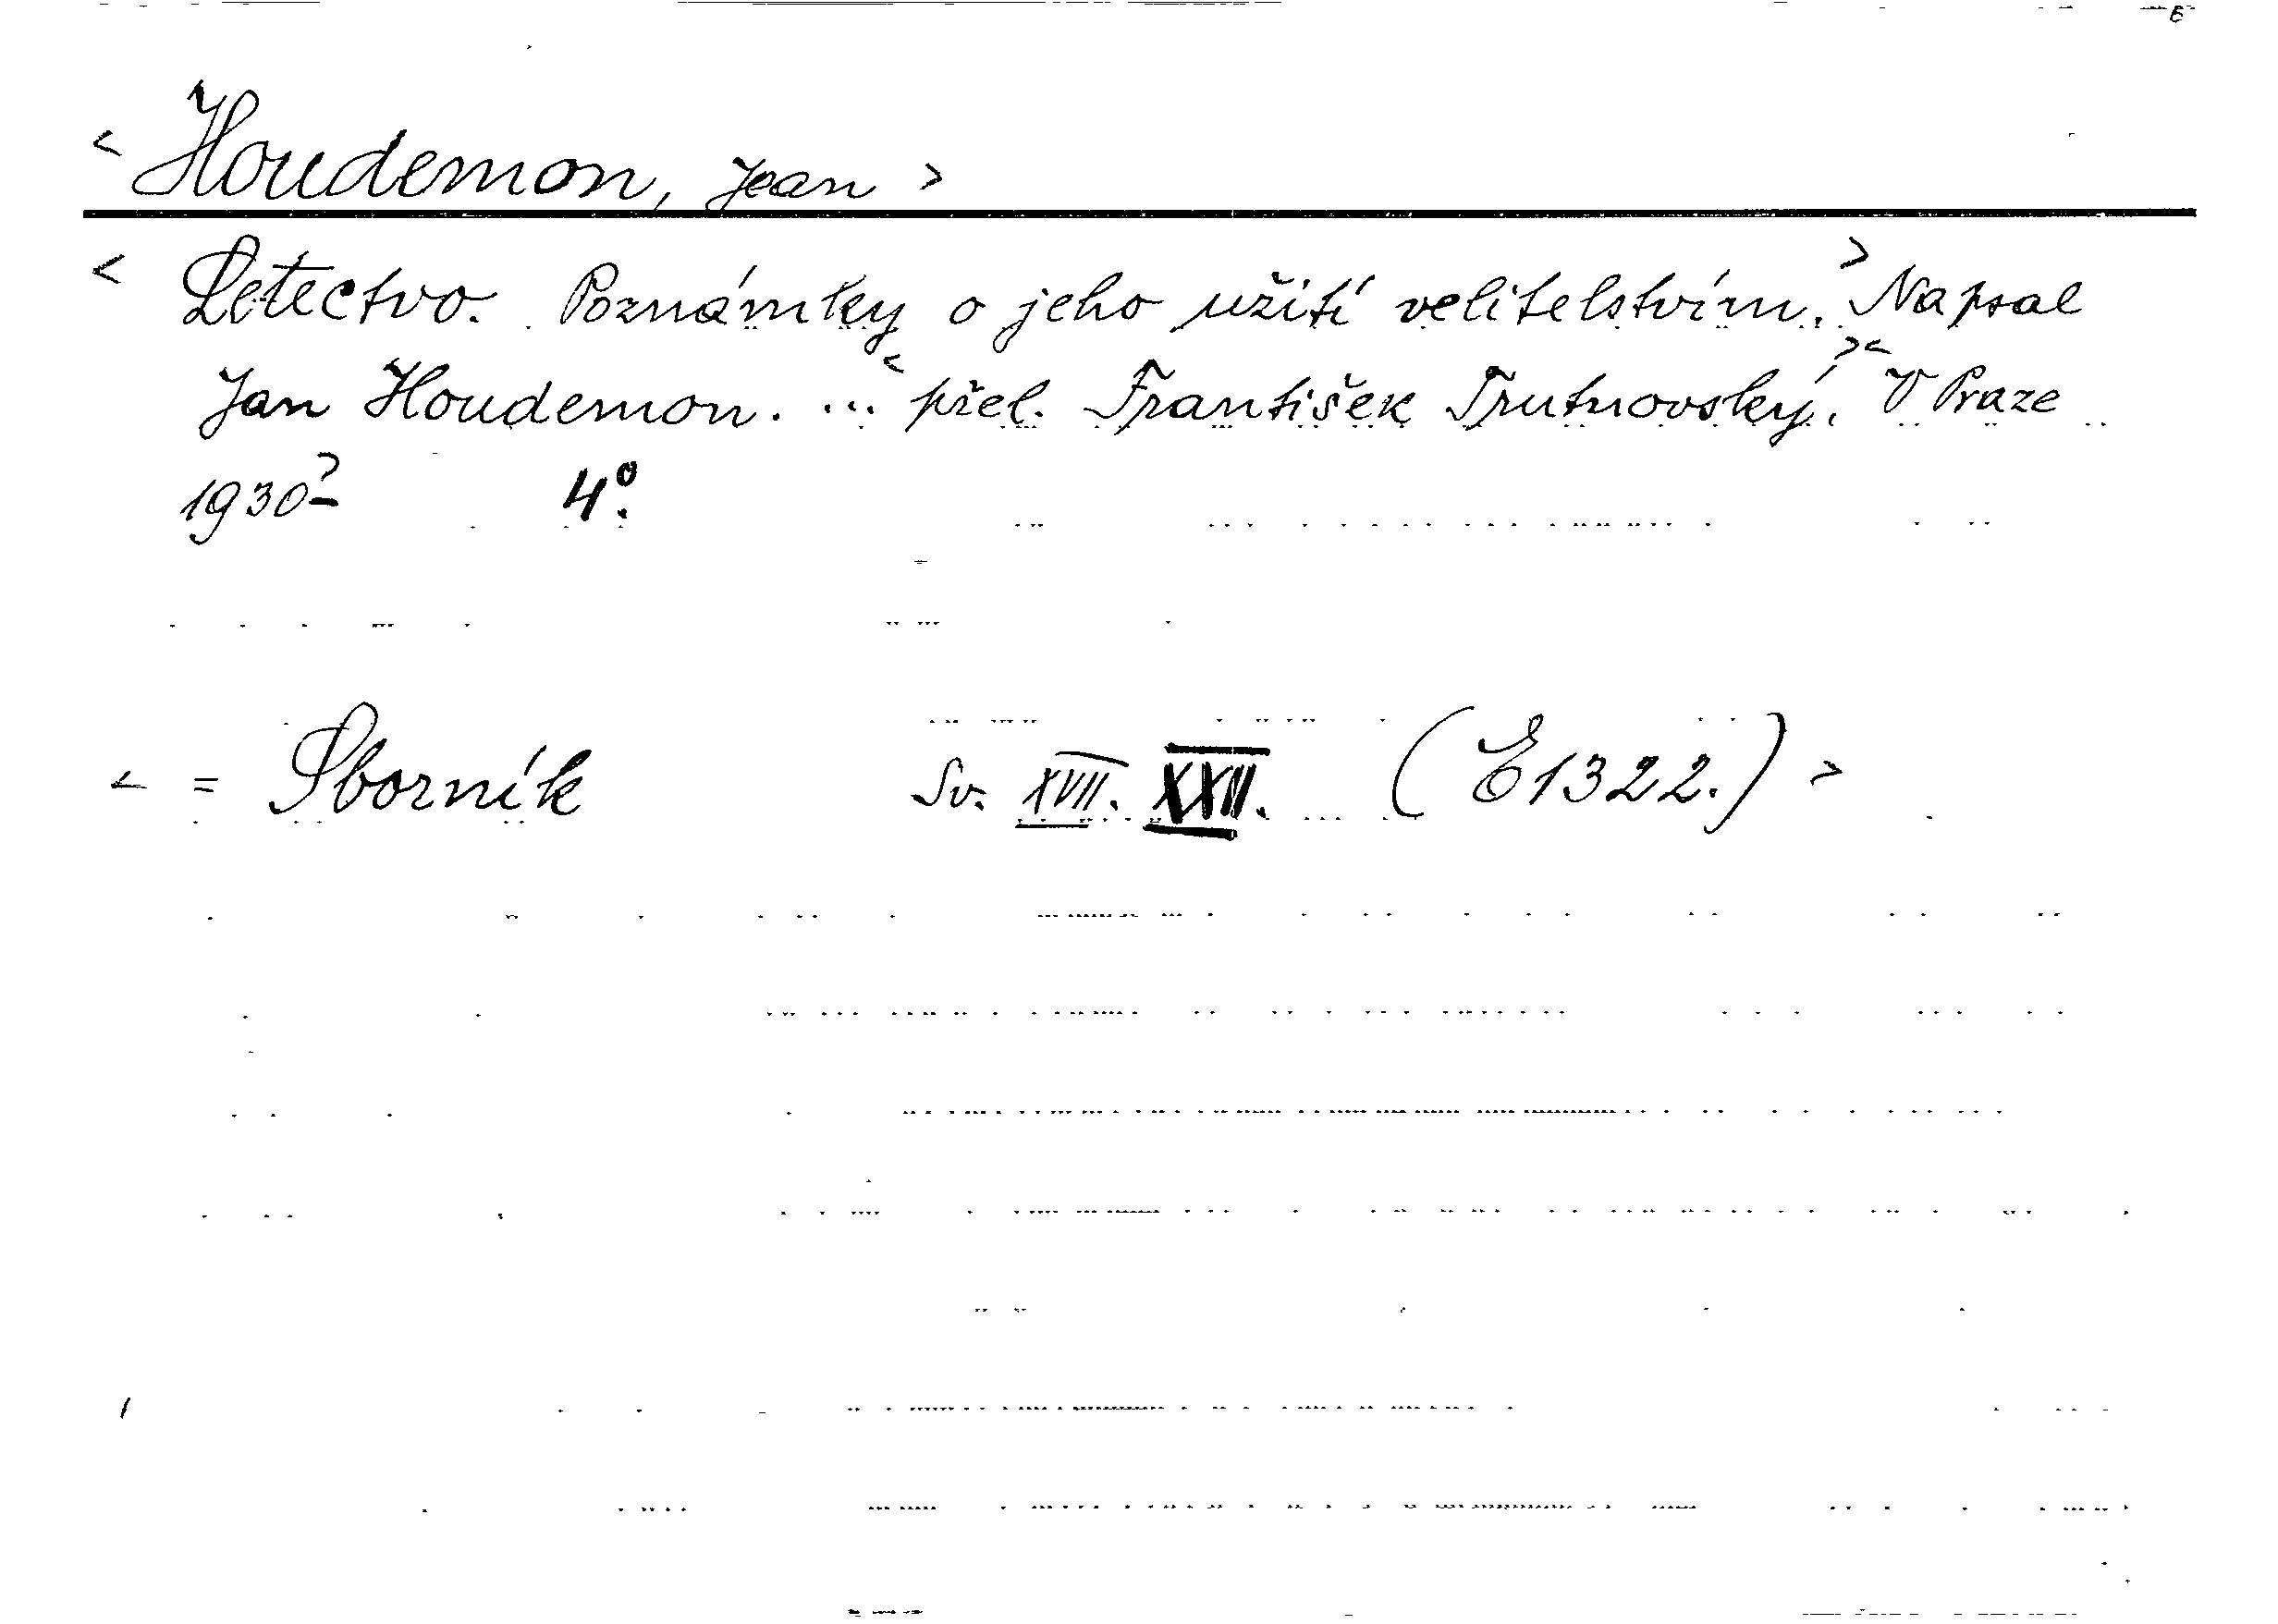 < Houdemon, Jean >
< Letectvo. Poznámky o jeho užití velitelstvím. > Napsal
Jan Houdemon. ... < přel. František Trutnovský. > < V Praze
1930 > 4°.
< = Sborník Sv. XVII. XXII. (E1322.) >